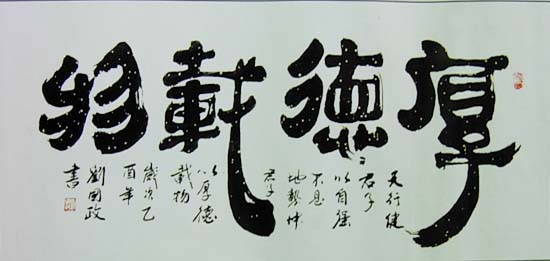 厚德载物
天行健
君子
以自强
不息
地势坤
君子
以厚德
载物
岁次乙
酉年
劉國政
書